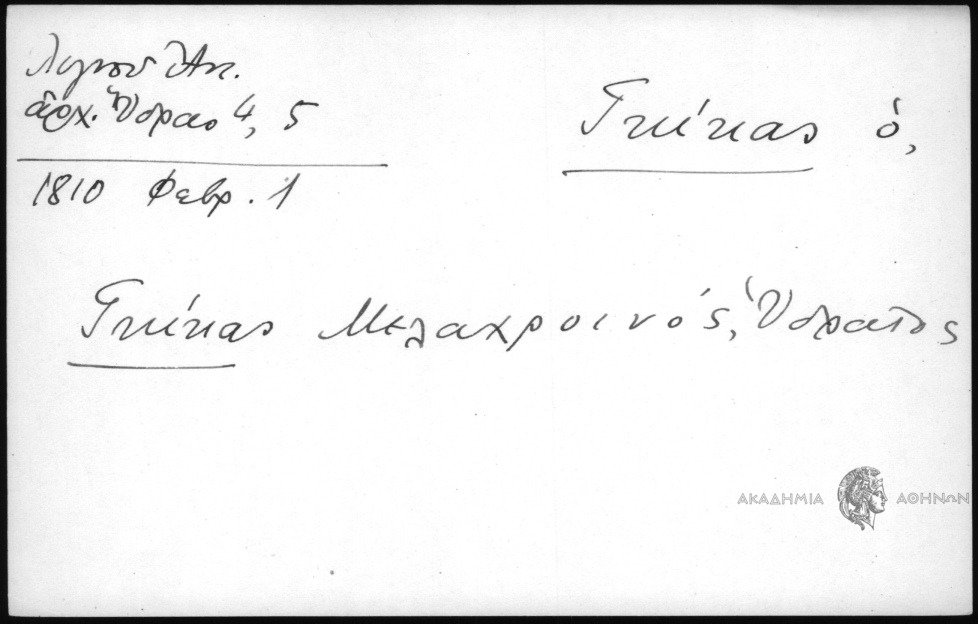 Λιγνοῦ Ἀν.
ἀρχ. Ὕδρας 4, 5
1810 Φεβρ. 1
Γκίκας ὁ,
Γκίκας Μελαχροινός, Ὑδραῖος
ΑΚΑΔΗΜΙΑ ΑΘΗΝΩΝ